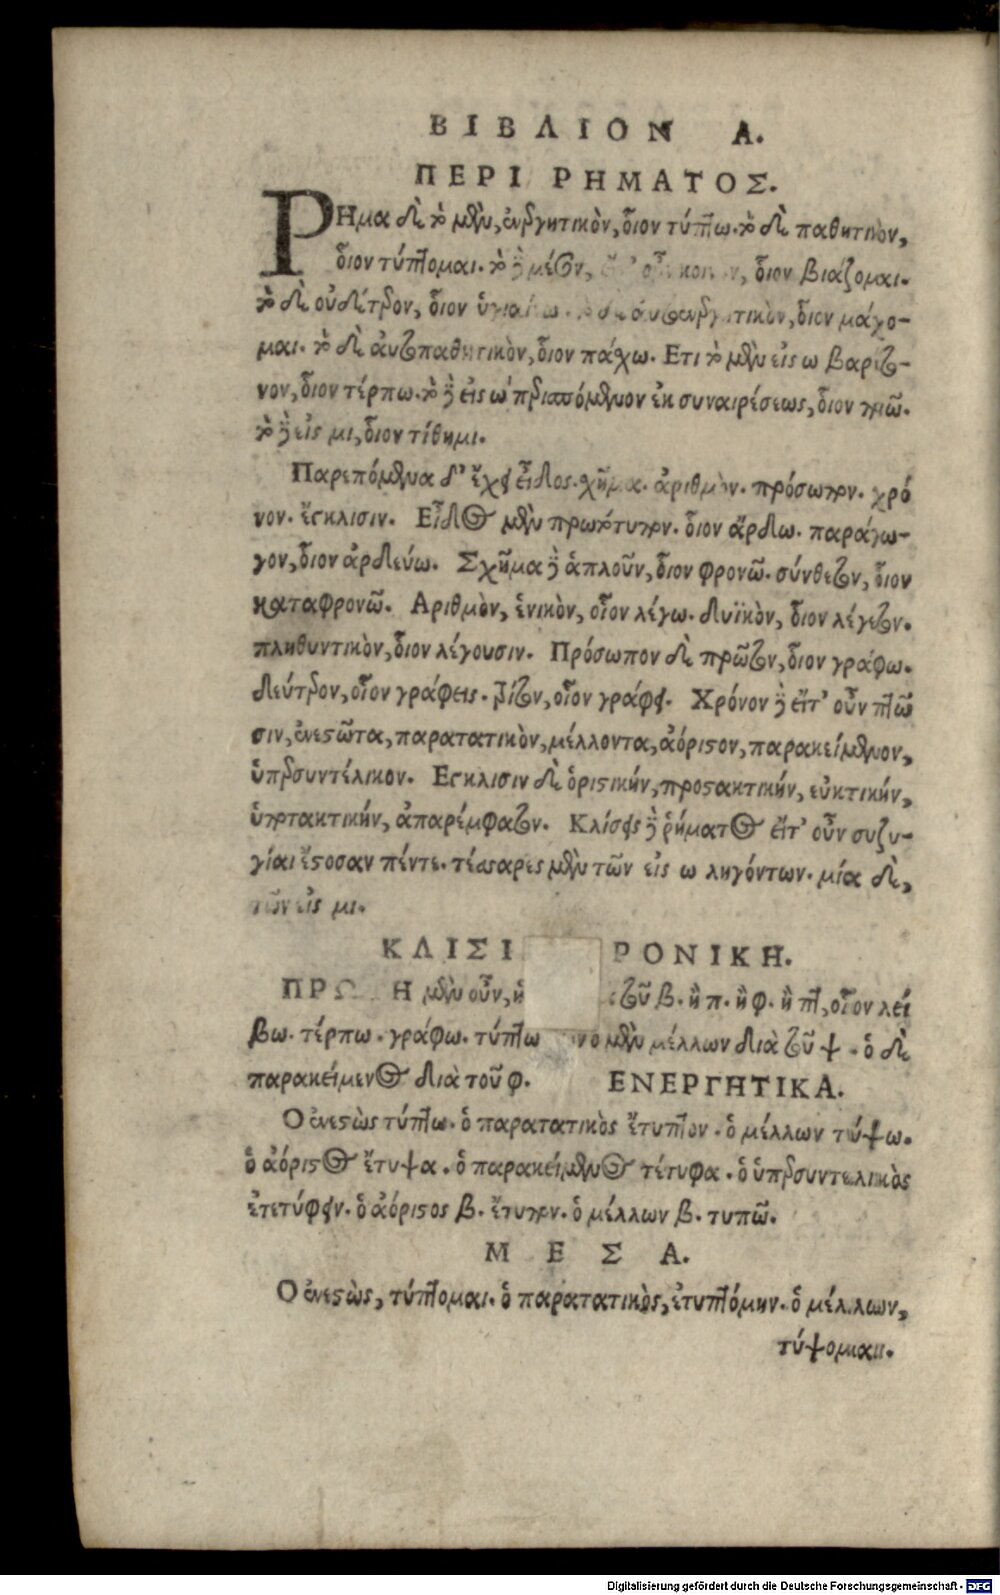 ΒΙΒΛΙΟΝ Α.
ΠΕΡΙ ΡΗΜΑΤΟΣ.
ΡΗμα δὲ τὸ μὲν, ἐνεργητικὸν, ὅιον τύπτω. τὸ δὲ παθητικὸν,
ὅιον τύπτομαι. τὸ δὲ μέσον, ὅιον βιάζομαι.
τὸ δὲ οὐδέτερον, ὅιον τὸ δὲ ἀυτοενεργητικὸν, ὅιον μάχο-
μαι. τὸ δὲ ἀυτοπαθητικὸν, ὅιον πάχω. Ετι τὸ μὲν εἰς ω βαρύτο-
νον, ὅιον τέρπω. τὸ δὲ εἰς ω περισπόμενον ἐκ συναιρέσεως, ὅιον ποιῶ.
τὸ δὲ εἰς μι, ὅιον τίθημι.
Παρεπόμενα δ' ἔχει εἶδος. χῆμα. ἀριθμὸν. πρόσωπον. χρό
νον. ἔγκλισιν. Εἶδος μὲν πρωτότυπον. ὅιον ἄρδω. παράγω-
γον, ὅιον ἀρδεύω. Σχῆμα δὲ ἁπλοῦν, ὅιον φρονῶ. σύνθετον, ὅιον
καταφρονῶ. Αριθμὸν, ἑνικὸν, οἷον λέγω. δυϊκὸν, ὅιον λέγετον.
πληθυντικὸν, ὅιον λέγουσιν. Πρόσωπον δὲ πρῶτον, ὅιον γράφω.
δεύτερον, οἷον γράφεις. τρίτον, οἷον γράφει. Χρόνον δὲ εἴτ' οὖν πτῶ
σιν, ἐνεστῶτα, παρατατικὸν, μέλλοντα, ἀόριστον, παρακείμενον,
ὑπερσυντέλικον. Εγκλισιν δὲ ὁριστικήν, προστακτικήν, εὐκτικήν,
ὑποτακτικήν, ἀπαρέμφατον. Κλίσεις δὲ ῥήματος εἴτ' οὖν συζυ-
γίαι ἔστοσαν πέντε. τέσσαρες μὲν τῶν εἰς ω ληγόντων. μία δὲ,
τῶν εἰς μι.
ΚΛΙΣΙ ΡΟΝΙΚΗ.
ΠΡΩ Η μὲν οὖν, ἡ τοῦ β. ἢ π. ἢ φ. ἢ πτ, οἷον λεί
βω. τέρπω. γράφω. τύπτω μὲν μέλλων διὰ τοῦ ψ. ὁ δὲ
παρακείμενος διὰ τοῦ φ. ΕΝΕΡΓΗΤΙΚΑ.
Ο ἐνεστὼς τύπτω. ὁ παρατατικὸς ἔτυπτον. ὁ μέλλων τύψω.
ὁ ἀόριστος ἔτυψα. ὁ παρακείμενος τέτυφα. ὁ ὑπερσυντελικὸς
ἐτετύφειν. ὁ ἀόριστος β. ἔτυπον. ὁ μέλλων β. τυπῶ.
ΜΕΣΑ.
Ο ἐνεστὼς, τύπτομαι. ὁ παρατατικὸς, ἐτυπτόμην. ὁ μέλλων,
τύψομαι.
Digitalisierung gefördert durch die Deutsche Forschungsgemeinschaft - DFG